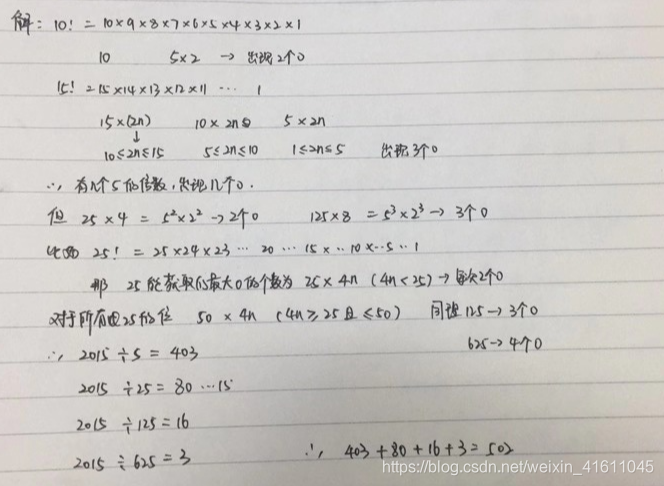 解: 10! = 10×9×8×7×6×5×4×3×2×1
10 5×2 → 出现2个0
15! = 15×14×13×12×11 ··· 1
15×(2n) 10×2n 5×2n
↓
10≤2n≤15 5≤2n≤10 1≤2n≤5 出现3个0
∴ 有几个5的倍数,出现几个0.
但 25×4 = 5²×2² → 2个0 125×8 = 5³×2³ → 3个0
比如 25! = 25×24×23 ··· 20 ··· 15×··10×··5··1
那 25能获取的最大0的个数为 25×4n (4n<25) → 每次2个0
对于所有 25的倍 50×4n (4n≥25且≤50) 同理125→3个0
625→4个0
∴ 2015÷5 = 403
2015÷25 = 80 ···15
2015÷125 = 16
2015÷625 = 3 ∴ 403+80+16+3=502
https://blog.csdn.net/weixin_41611045